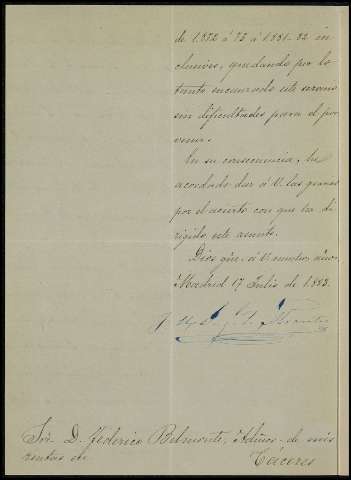 de 1.872 á 73 á 1881-82 in-
clusives, quedando por lo
tanto encauzado este servicio
sin dificultades para el por-
venir.
En su consecuencia, he
acordado dar á V. las gracias
por el acierto con que ha di-
rigido este asunto.
Dios gũe. á V. muchos años.
Madrid 17 Julio de 1.883.
Sr. D. Federico Belmonte, Admor. de
rentas de
Cáceres